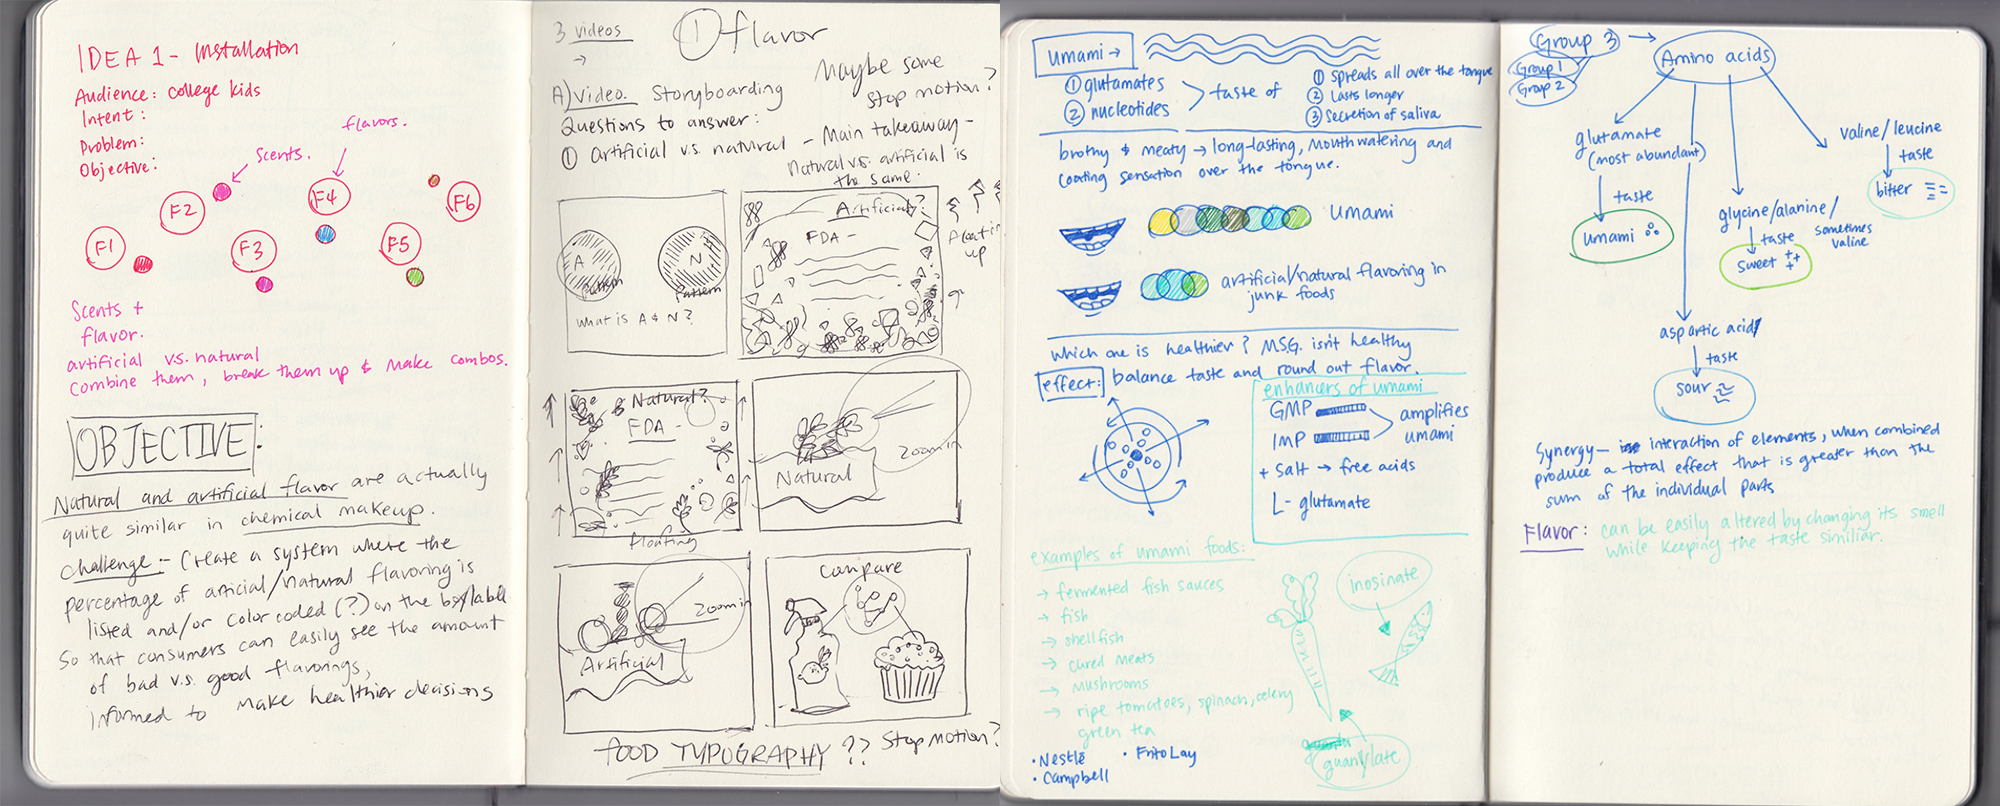 IDEA 1 - Installation
Audience: college kids
Intent:
Problem:
Objective:
flavors.
scents.
F1
F2
F3
F4
F5
F6
Scents +
flavor.
artificial vs. natural
combine them, break them up & make combos.
OBJECTIVE:
Natural and artificial flavor are actually
quite similar in chemical makeup.
Challenge:- Create a system where the
percentage of articial/natural flavoring is
listed and/or color coded (?) on the box/label
so that consumers can easily see the amount
of bad v.s. good flavorings,
informed to make healthier decisions
3 videos
→
① flavor
A) Video. Storyboarding
Maybe some
stop motion?
Questions to answer:
① Artificial v.s. natural - Main takeaway -
Natural vs. artificial is
the same.
A
pattern
N
pattern
what is A & N?
Artificial?
FDA -
floating
up
Natural?
FDA -
floating
Natural
zoom in
Artificial
zoom in
Conpare
FOOD TYPOGRAPHY ?? Stop motion?
umami →
① glutamates
② nucleotides
taste of
① spreads all over the tongue
② Lasts longer
③ Secretion of saliva
brothy & meaty → long-lasting, mouthwatering and
coating sensation over the tongue.
umami
artificial/natural flavoring in
junk foods
which one is healthier? M.S.G. isn't healthy
effect: balance taste and round out flavor.
enhancers of umami
GMP
IMP
amplifies
umami
+ salt → free acids
L- glutamate
examples of umami foods:
→ fermented fish sauces
→ fish
→ shellfish
→ cured meats
→ mushrooms
→ ripe tomatoes, spinach, celery
green tea
inosinate
guanylate
• Nestlē
• Campbell
• Frito Lay
Group 3 →
Group 1
Group 2
Amino acids
glutamate
(most abundant)
taste
umami
valine/leucine
taste
bitter
glycine/alanine/
sometimes
valine
taste
sweet
aspartic acid
taste
sour
Synergy - interaction of elements, when combined
produce a total effect that is greater than the
sum of the individual parts
Flavor: can be easily altered by changing its smell
while keeping the taste similiar.